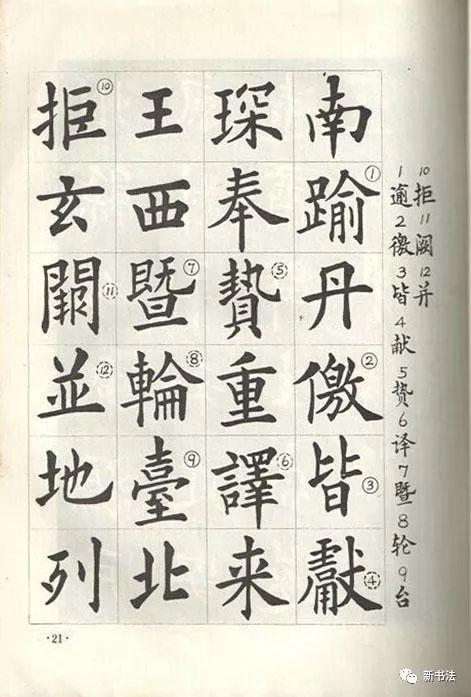 1逾2徼3皆4献5贽6译7暨8轮9台
10拒11阙12并
南踰①丹儌②皆③獻④
琛奉贄⑤重譯⑥来
王西暨⑦輪⑧臺⑨北
拒⑩玄闕⑪並⑫地列
·21·
新书法